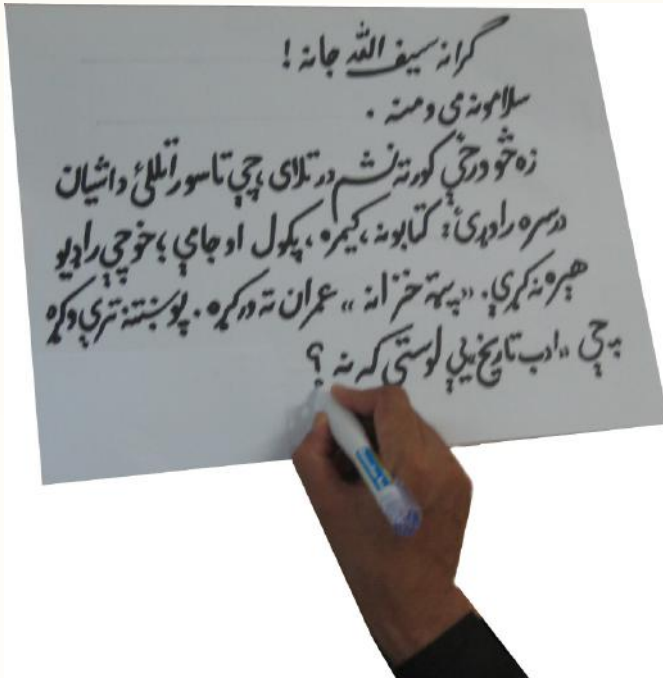 ګرانه سيف الله جانه!
سلامونه مې ومنه.
زه څو ورځې کور ته نشم درتلای، چې تاسو راتللئ دا شيان
درسره راوړئ: کتابونه، کيمره، پکول او جامې؛ خو چې راډيو
هېره نه کړې. «پټه خزانه» عمران ته ورکړه. پوښتنه ترې وکړه
چې «ادب تاريخ يې لوستی که نه؟